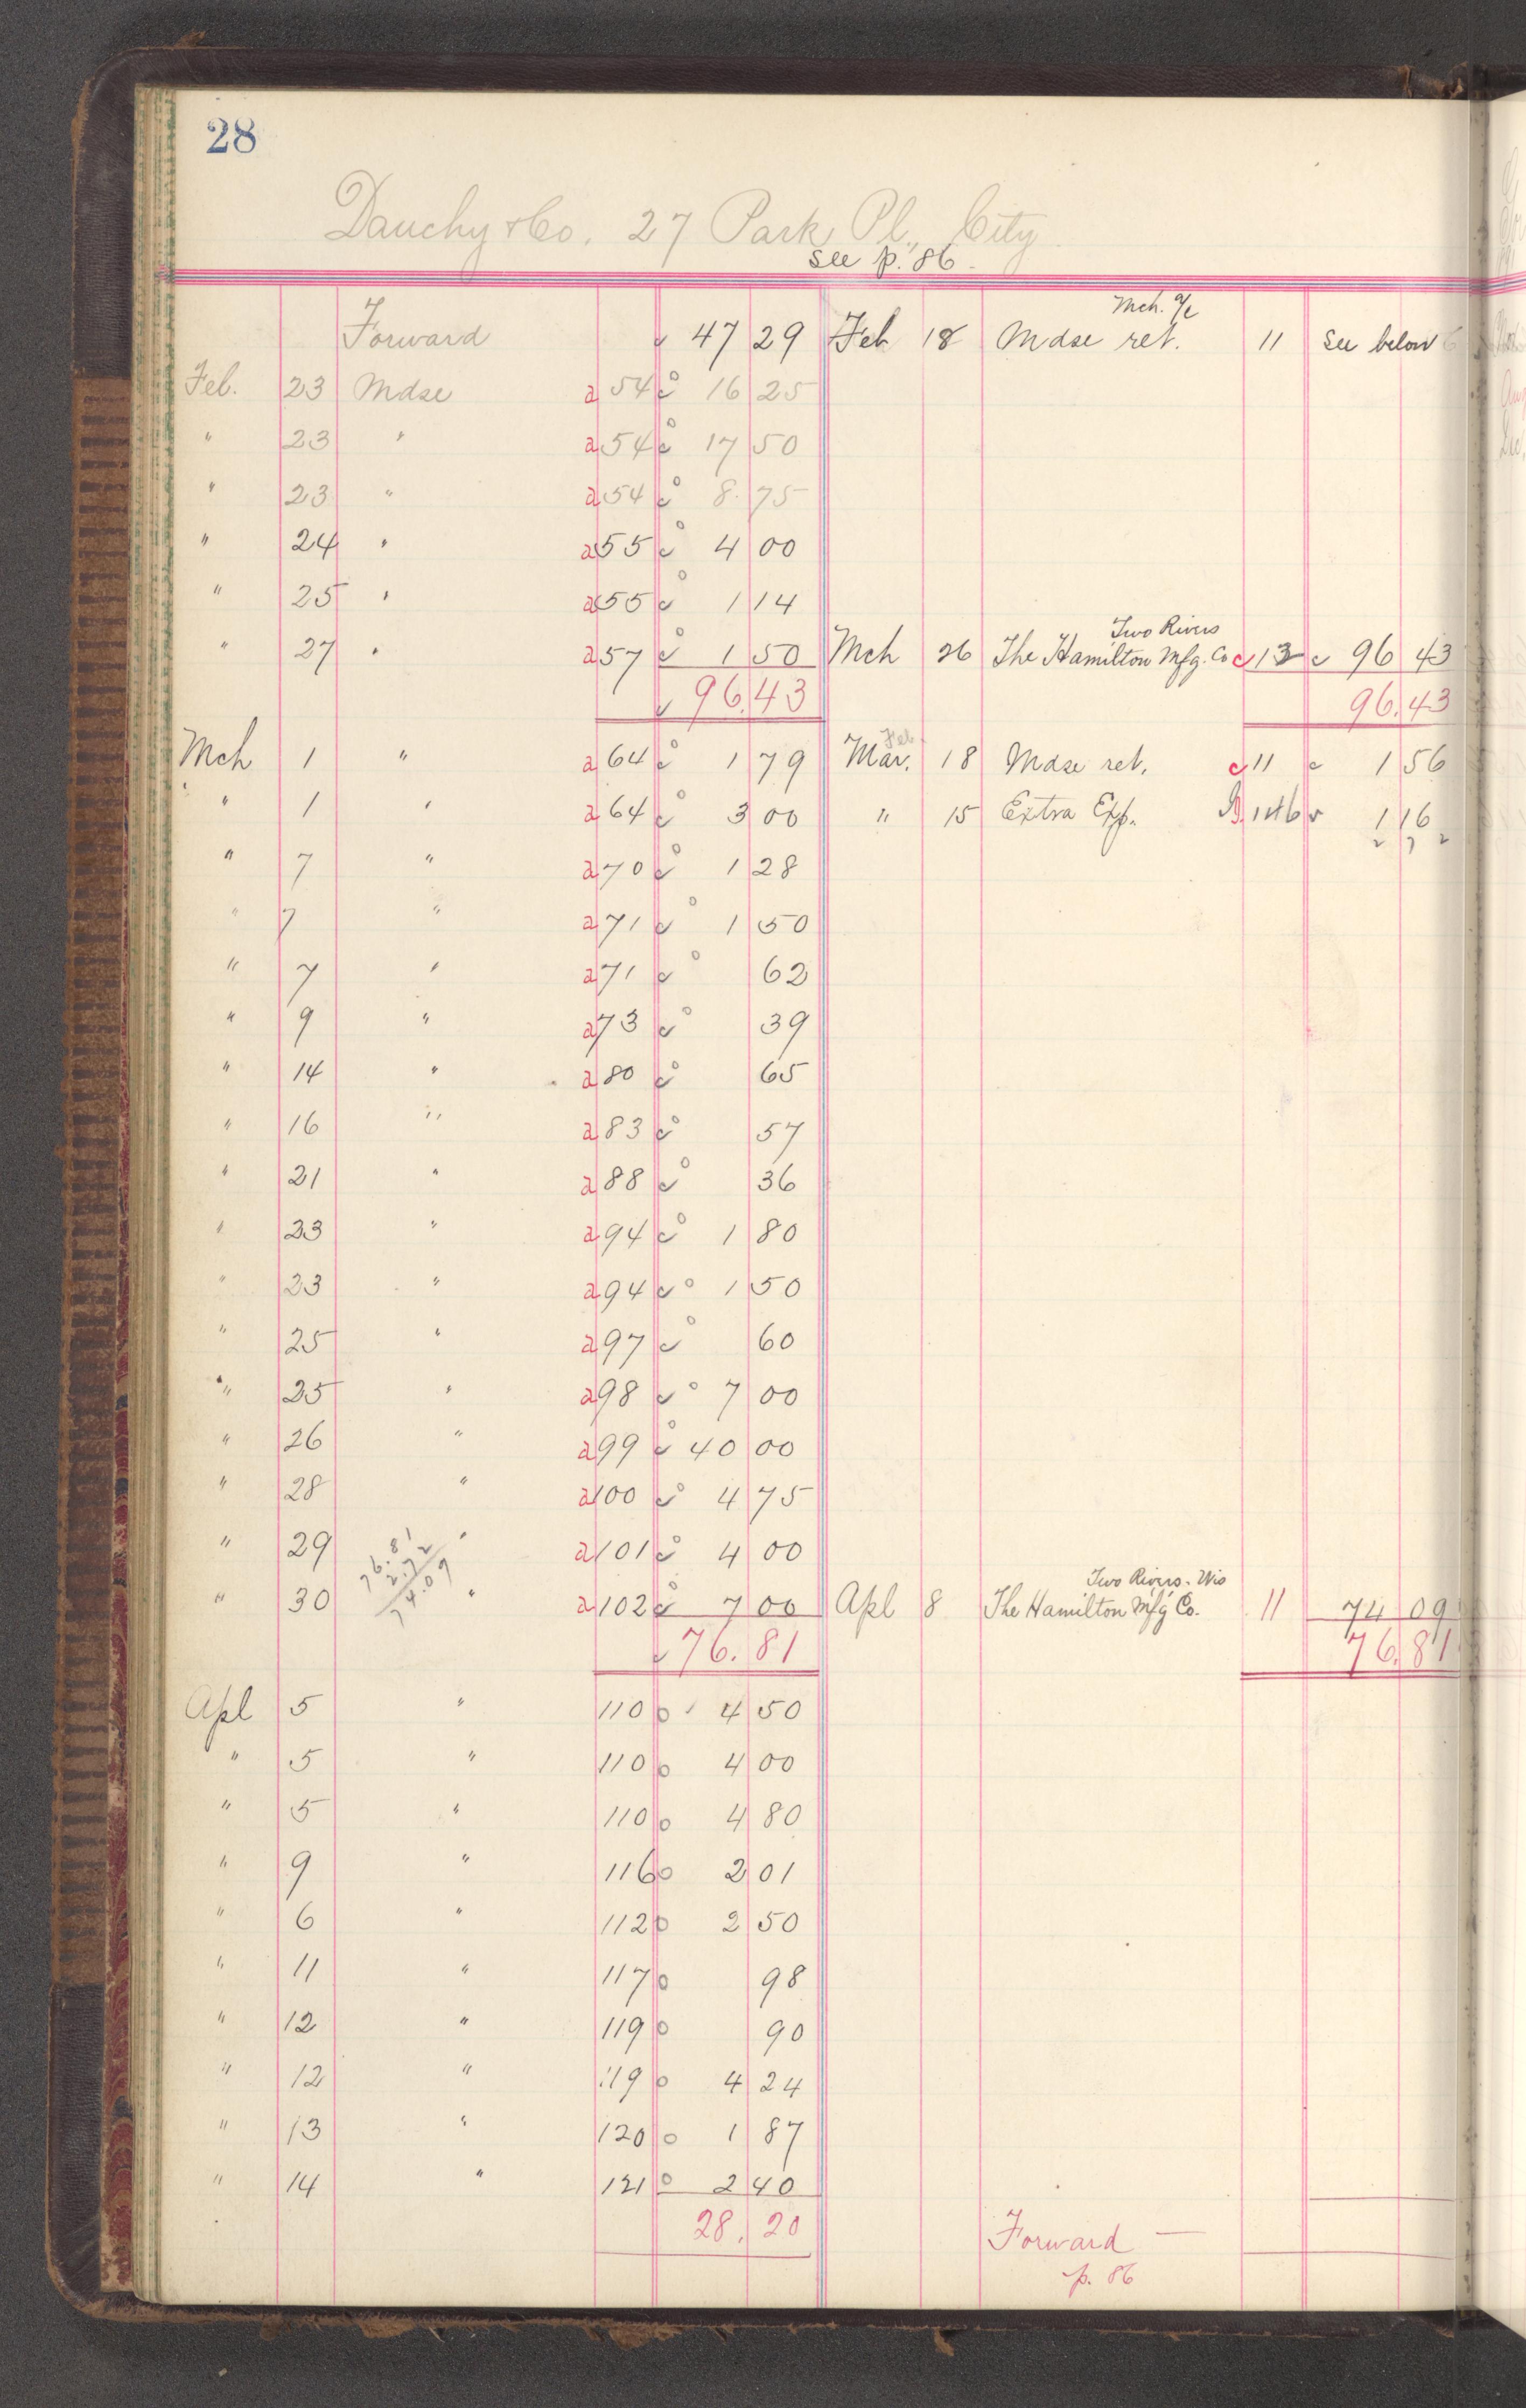 28
Dauchy & Co. 27 Park Pl., City
see p. 86
Forward 47 29 Feb 18 Mdse ret. Mch. a/c 11 See below
Feb. 23 Mdse a 54 16 25
" 23 " a 54 17 50
" 23 " a 54 8.75
" 24 " a 55 4 00
" 25 " a 55 1 14
" 27 " a 57 1 50 Mch 26 The Hamilton Mfg. Co Two Rivers c 13 96 43
96.43 96.43
Mch 1 " a 64 1 79 Mar. Feb 18 Mdse ret. c 11 1 56
" 1 " a 64 3 00 " 15 Extra Exp. 146 1 16
2 7 2
" 7 " a 70 1 28
" 7 " a 71 1 50
" 7 " a 71 62
" 9 " a 73 39
" 14 " a 80 65
" 16 " a 83 57
" 21 " a 88 36
" 23 " a 94 1 80
" 23 " a 94 1 50
" 25 " a 97 60
" 25 " a 98 7 00
" 26 " a 99 40 00
" 28 " a 100 4 75
" 29 " a 101 4 00
76.81
2.72
74.09
" 30 " a 102 7 00 Apl 8 The Hamilton Mfg Co. Two Rivers. Wis 11 74 09
76.81 76.81
Apl 5 " 110 4 50
" 5 " 110 4 00
" 5 " 110 4 80
" 9 " 116 2 01
" 6 " 112 2 50
" 11 " 117 98
" 12 " 119 90
" 12 " 119 4 24
" 13 " 120 1 87
" 14 " 121 2 40
28.20 Forward —
p. 86